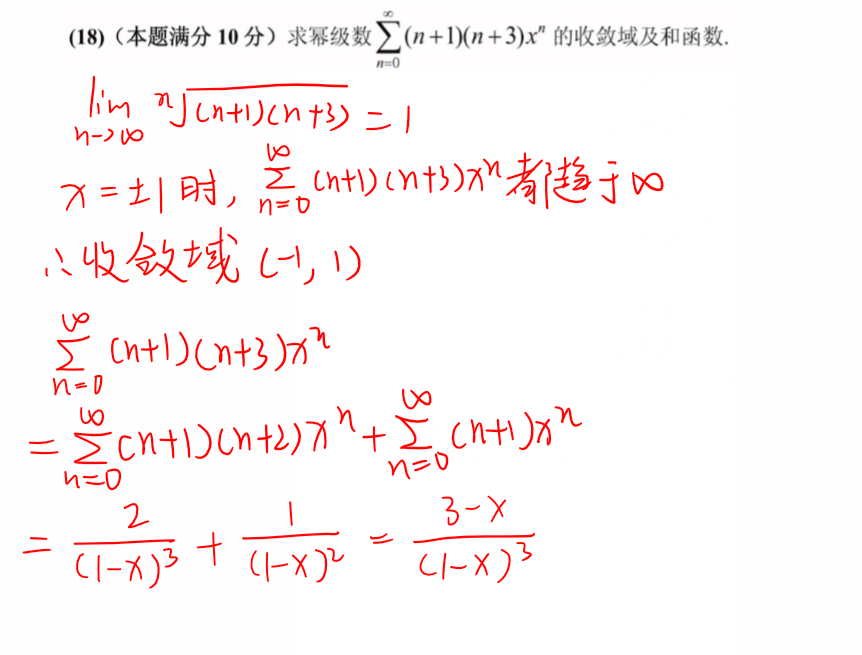 (18)（本题满分 10 分）求幂级数 $\sum_{n=0}^{\infty}(n+1)(n+3)x^n$ 的收敛域及和函数.
$\lim_{n\to\infty} \sqrt[n]{(n+1)(n+3)} = 1$
$x = \pm 1$ 时, $\sum_{n=0}^{\infty}(n+1)(n+3)x^n$ 都趋于 $\infty$
∴收敛域 (-1, 1)
$\sum_{n=0}^{\infty}(n+1)(n+3)x^n$
$= \sum_{n=0}^{\infty}(n+1)(n+2)x^n + \sum_{n=0}^{\infty}(n+1)x^n$
$= \frac{2}{(1-x)^3} + \frac{1}{(1-x)^2} = \frac{3-x}{(1-x)^3}$